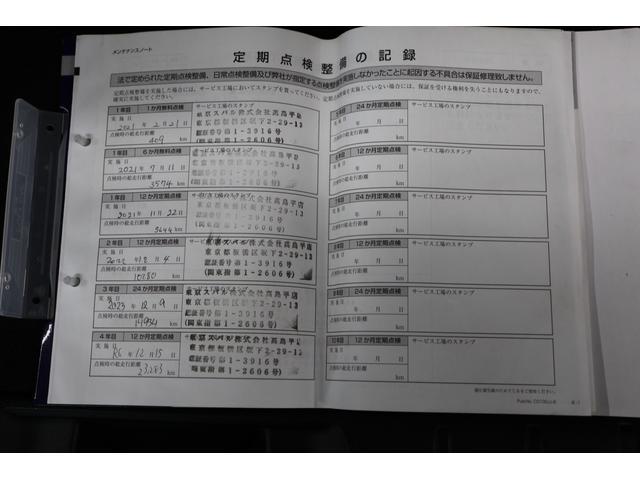 メンテナンスノート
定期点検整備の記録
法で定められた定期点検整備、日常点検整備及び弊社が指定する点検整備を実施しなかったことに起因する不具合は保証修理致しません。
定期点検整備を実施した場合には、サービス工場においてスタンプを貰ってください。定期点検整備を実施していない場合には、保証を受ける権利を失うことにもなりますので、
確実に実施してください。
1年目 1か月無料点検 サービス工場のスタンプ
東京スバル株式会社高島平店
実施日 2021年2月21日 東京都板橋区坂下2-29-13
点検時の総走行距離 認証番号第1-3916号
409 km (関東指第1-2606号)
1年目 6か月無料点検 サービス工場のスタンプ
東京スバル株式会社高島平店
実施日 2021年7月11日 東京都板橋区坂下2-29-13
点検時の総走行距離 認証番号第1-3916号
3574 km (関東指第1-2606号)
1年目 12か月定期点検 サービス工場のスタンプ
東京スバル株式会社高島平店
実施日 2021年11月22日 東京都板橋区坂下2-29-13
点検時の総走行距離 認証番号第1-3916号
km (関東指第1-2606号)
2年目 12か月定期点検 サービス工場のスタンプ
東京スバル株式会社高島平店
実施日 2022年 月4日 東京都板橋区坂下2-29-13
点検時の総走行距離 認証番号第1-3916号
10280 km (関東指第1-2606号)
3年目 24か月定期点検 サービス工場のスタンプ
東京スバル株式会社高島平店
実施日 2023年12月9日 東京都板橋区坂下2-29-13
点検時の総走行距離 認証番号第1-3916号
km (関東指第1-2606号)
4年目 12か月定期点検 サービス工場のスタンプ
東京スバル株式会社高島平店
実施日 R6年12月15日 東京都板橋区坂下2-29-13
点検時の総走行距離 認証番号第1-3916号
23,283 km (関東指第1-2606号)
5年目 24か月定期点検 サービス工場のスタンプ
実施日 年 月 日
点検時の総走行距離
km
12か月定期点検 サービス工場のスタンプ
実施日 年 月 日
点検時の総走行距離
km
24か月定期点検 サービス工場のスタンプ
実施日 年 月 日
点検時の総走行距離
km
12か月定期点検 サービス工場のスタンプ
実施日 年 月 日
点検時の総走行距離
km
24か月定期点検 サービス工場のスタンプ
実施日 年 月 日
点検時の総走行距離
km
12か月定期点検 サービス工場のスタンプ
実施日 年 月 日
点検時の総走行距離
km